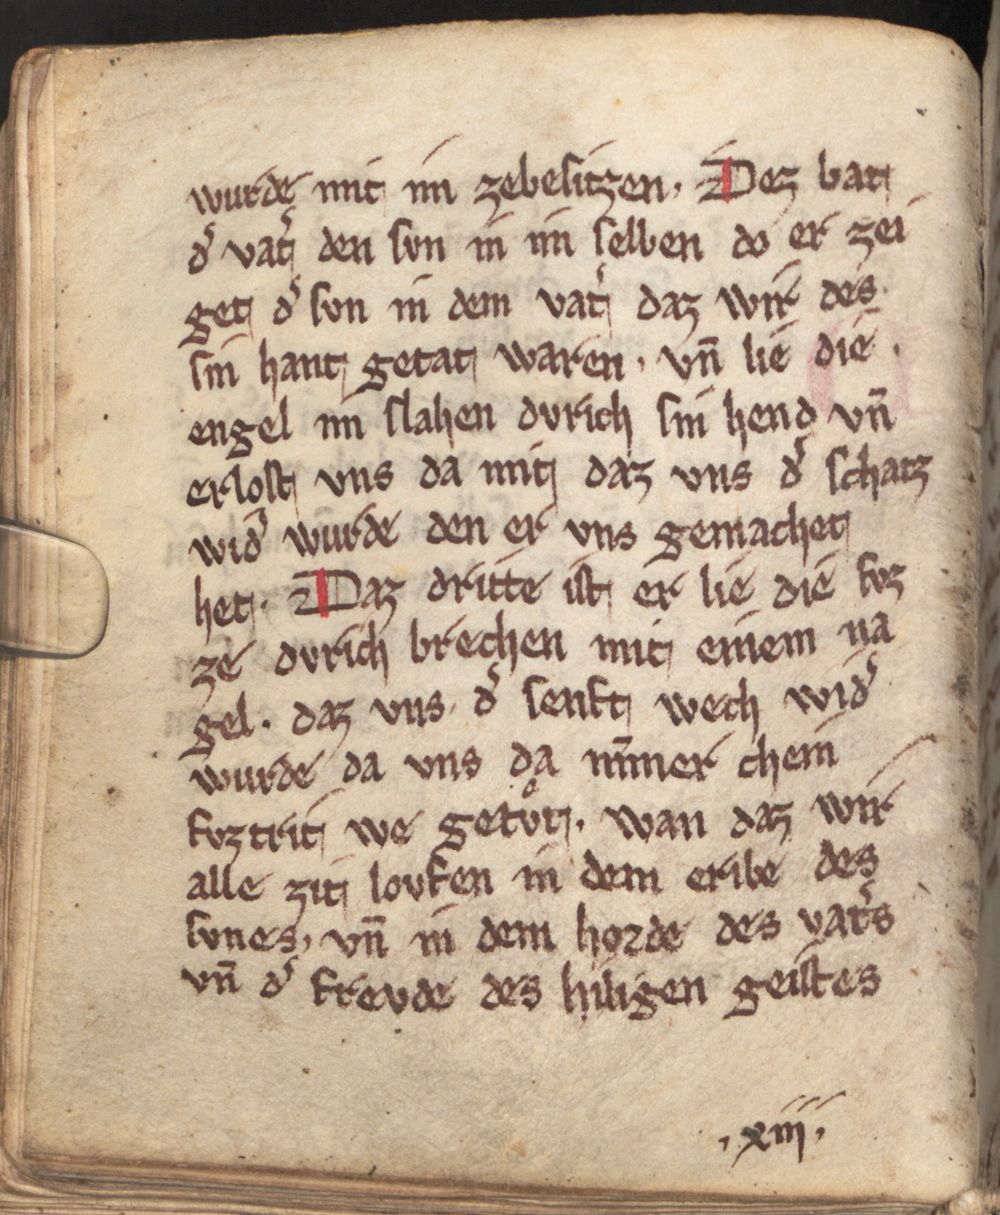 wurde mit im zebesitzen. Dez bat
d͛ vat͛ den svn in im selben do er zei
get d͛ svn in dem vat͛ daz wir des
sin hant getat waren. vn̄ lie die
engel im slahen dvrich sin hend vn̄
erlost vns da mit daz vns d͛ schatz
wid͛ wurde den er vns gemachet
het. Daz dritte ist er lie die fvz
ze dvrich brechen mit einem na
gel. daz vns d͛ senft wech wid͛
wurde da vns da nīmer chein
fvztrit we getvͦt. wan daz wir
alle zit lovfen in dem eribe des
svnes, vn̄ in dem horde des vat͛s
vn̄ d͛ frevde des hiligen geistes
.xiij.